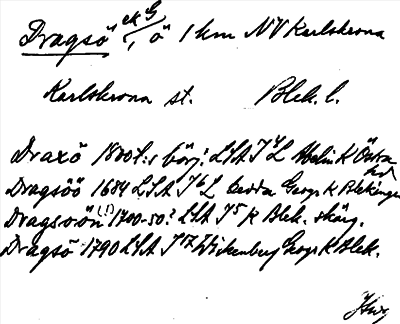 Dragsö ek G
/, ö 1 km NV Karlskrona
Karlskrona st. Blek. l.
Draxö 1800t:s börj: LSA I 4 L Melin K Östra
Dragsöö 1684 LSA I 6 L Geogr K Blekinge
Dragsöön (!) 1700-50? LSA I 5 K Blek. skärg.
Dragsö 1790 LSA I 17 Wikenberg Geogr K Blek.